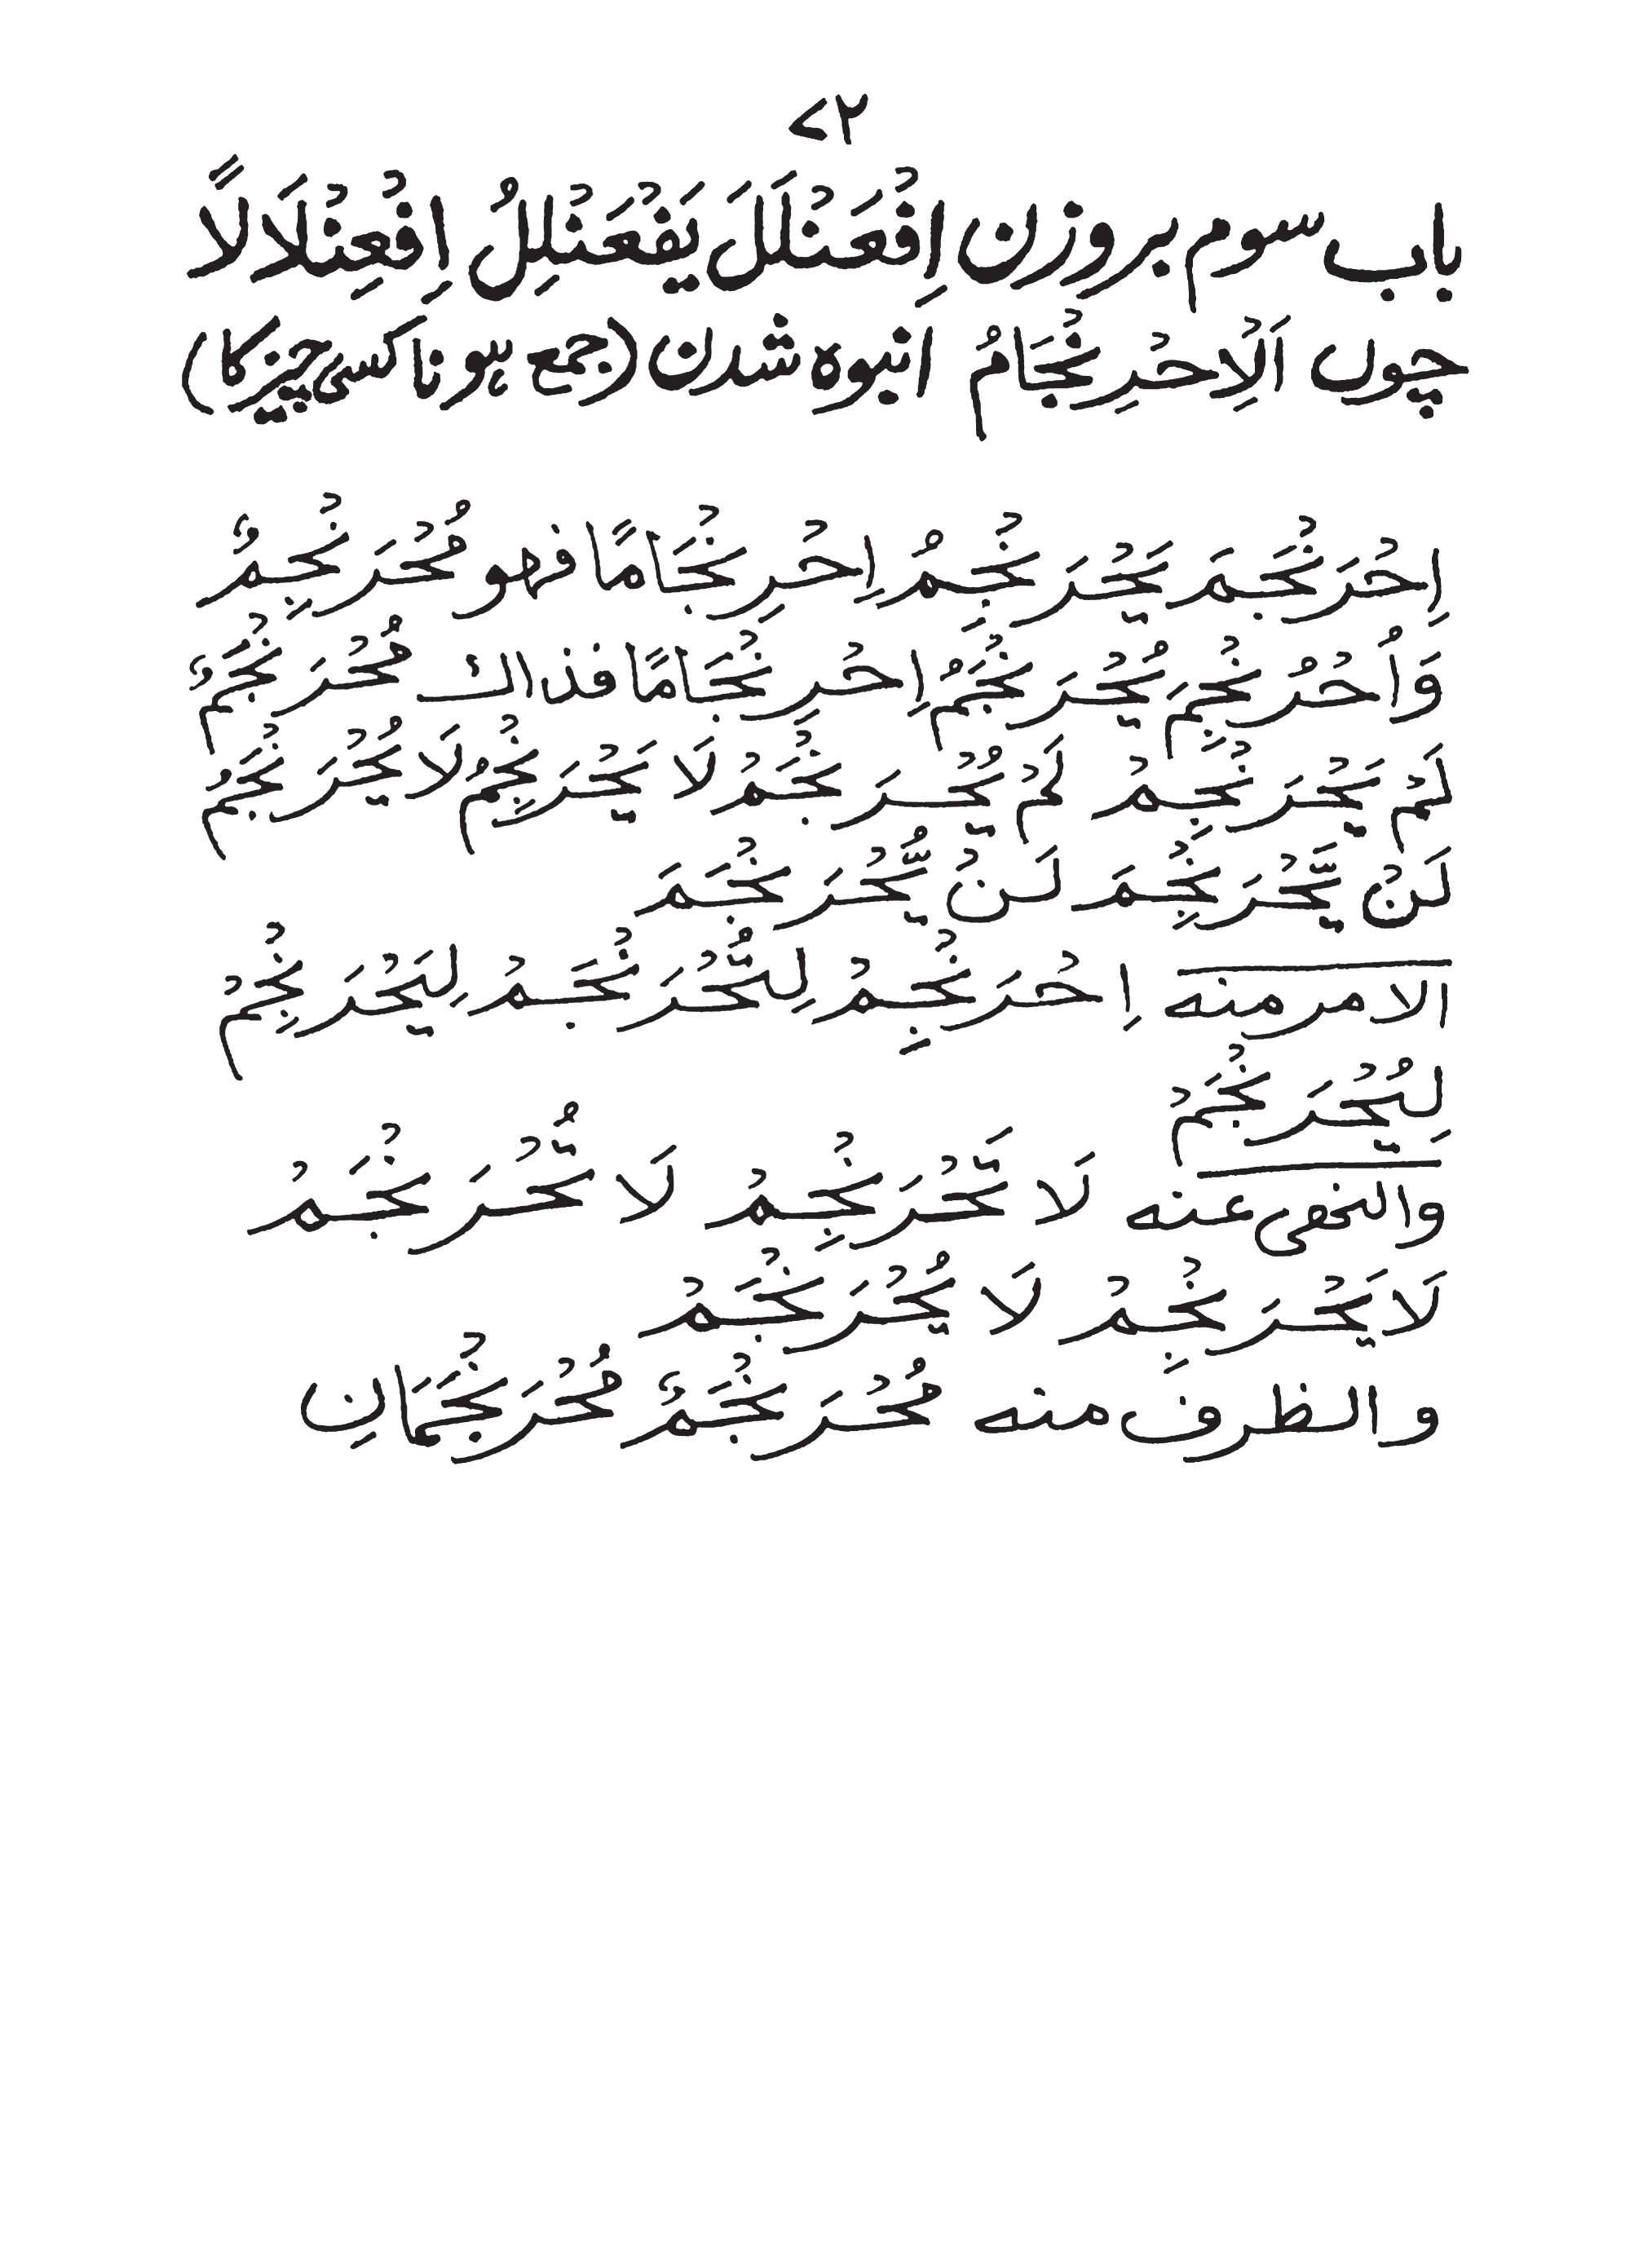 ۷۲
باب سوم بروزن اِفْعَنْلَلَ يَفْعَنْلِلُ اِفْعِنْلَالًا
چوں اَلْاِحْرِنْجَامُ انبوہ شدن (جمع ہونا کسی چیز کا)
اِحْرَنْجَمَ يَحْرَنْجِمُ اِحْرِنْجَامًا فهو مُحْرَنْجِمٌ
وَاُحْرُنْجِمَ يُحْرَنْجَمُ اِحْرِنْجَامًا فذاك مُحْرَنْجَمٌ
لَمْ يَحْرَنْجِمْ لَمْ يُحْرَنْجَمْ لَا يَحْرَنْجِمُ لَا يُحْرَنْجَمُ
لَنْ يَّحْرَنْجِمَ لَنْ يُّحْرَنْجَمَ
الامر منه اِحْرَنْجِمْ لِتُحْرَنْجَمْ لِيَحْرَنْجِمْ
لِيُحْرَنْجَمْ
والنهى عنه لَا تَحْرَنْجِمْ لَا تُحْرَنْجَمْ
لَا يَحْرَنْجِمْ لَا يُحْرَنْجَمْ
والظرف منه مُحْرَنْجَمٌ مُحْرَنْجَمَانِ